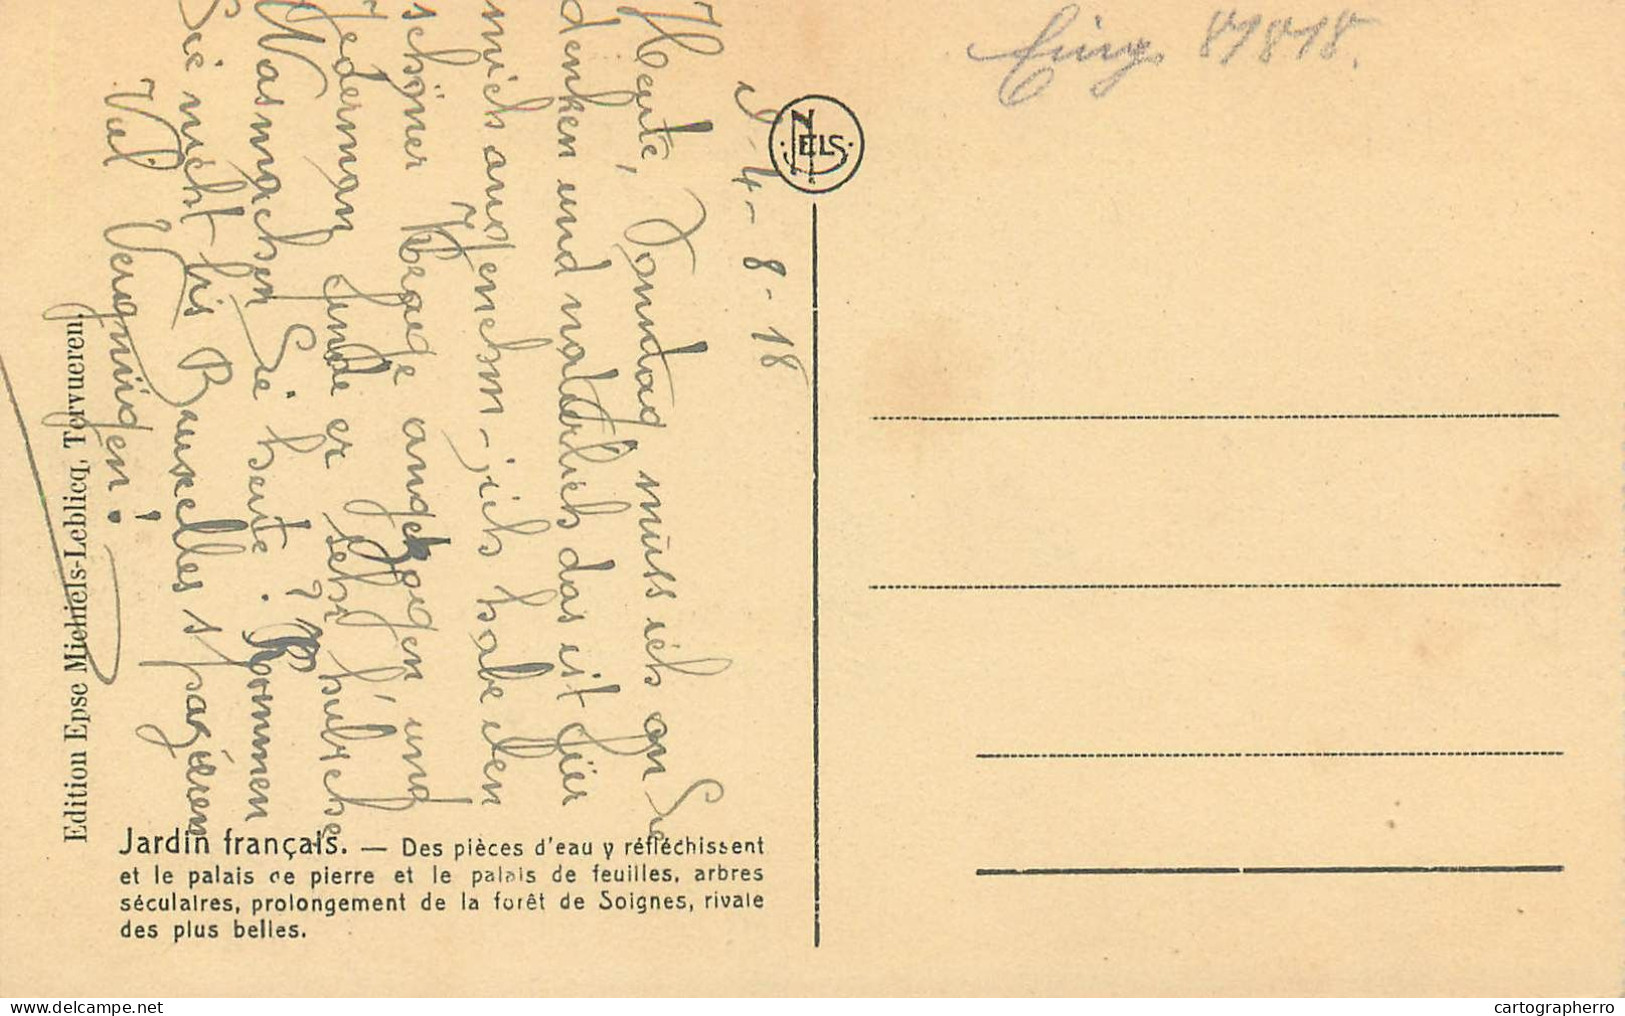 Eing. 8/8 18.
NELS
D. 4-8-18
Heute, Sonntag muss ich an Sie
denken und natürlich das ist für
mich angenehm - ich habe den
schöner Krage angezogen und
Jederman finde er sehr hubsche
Was machen Sie heute? Kommen
Sie nicht bis Bruxelles spazieren
Viel Vergnügen!
Edition Epse Michiels-Leblicq, Tervueren.
Jardin français. — Des pièces d'eau y réfléchissent
et le palais de pierre et le palais de feuilles, arbres
séculaires, prolongement de la forêt de Soignes, rivale
des plus belles.
delcampe.net
cartographerro